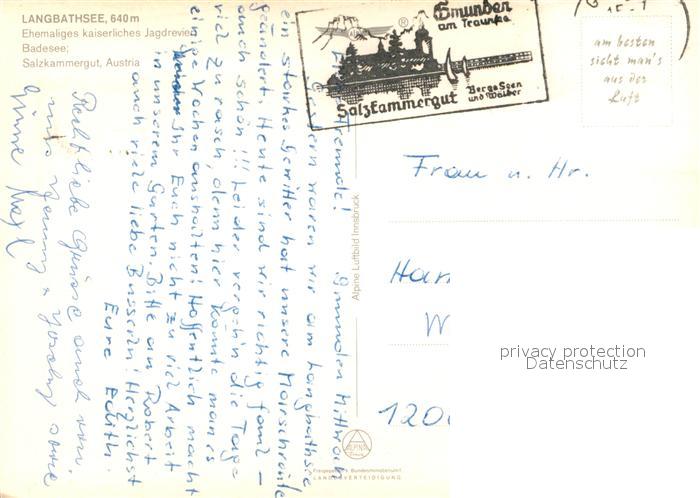 LANGBATHSEE, 640 m
Ehemaliges kaiserliches Jagdrevier
Badesee;
Salzkammergut, Austria
Gmunden
am Traunsee
Salzkammergut
Berge Seen
und Wälder
am besten
sieht man's
aus der
Luft
Gmunden Mittwoch
Freunde!
waren wir am Langbathsee
ein starkes Gewitter hat unsere
geändert. Heute sind wir richtig faul –
auch schön!!! Leider vergeh'n die Tage
viel zu rasch, denn hier könnte man es
einige Wochen aushalten! Hoffentlich macht
Ihr Euch nicht zu viel Arbeit
in unserem Garten. Bitte an Robert
auch viele liebe Busserln! Herzlichst
Eure Edith.
Grüsse auch von
Alpine Luftbild Innsbruck
Frau u. Hr.
Han
W
120
privacy protection
Datenschutz
ALPINE
Freigegeben v. Bundesministerium f.
LANDESVERTEIDIGUNG